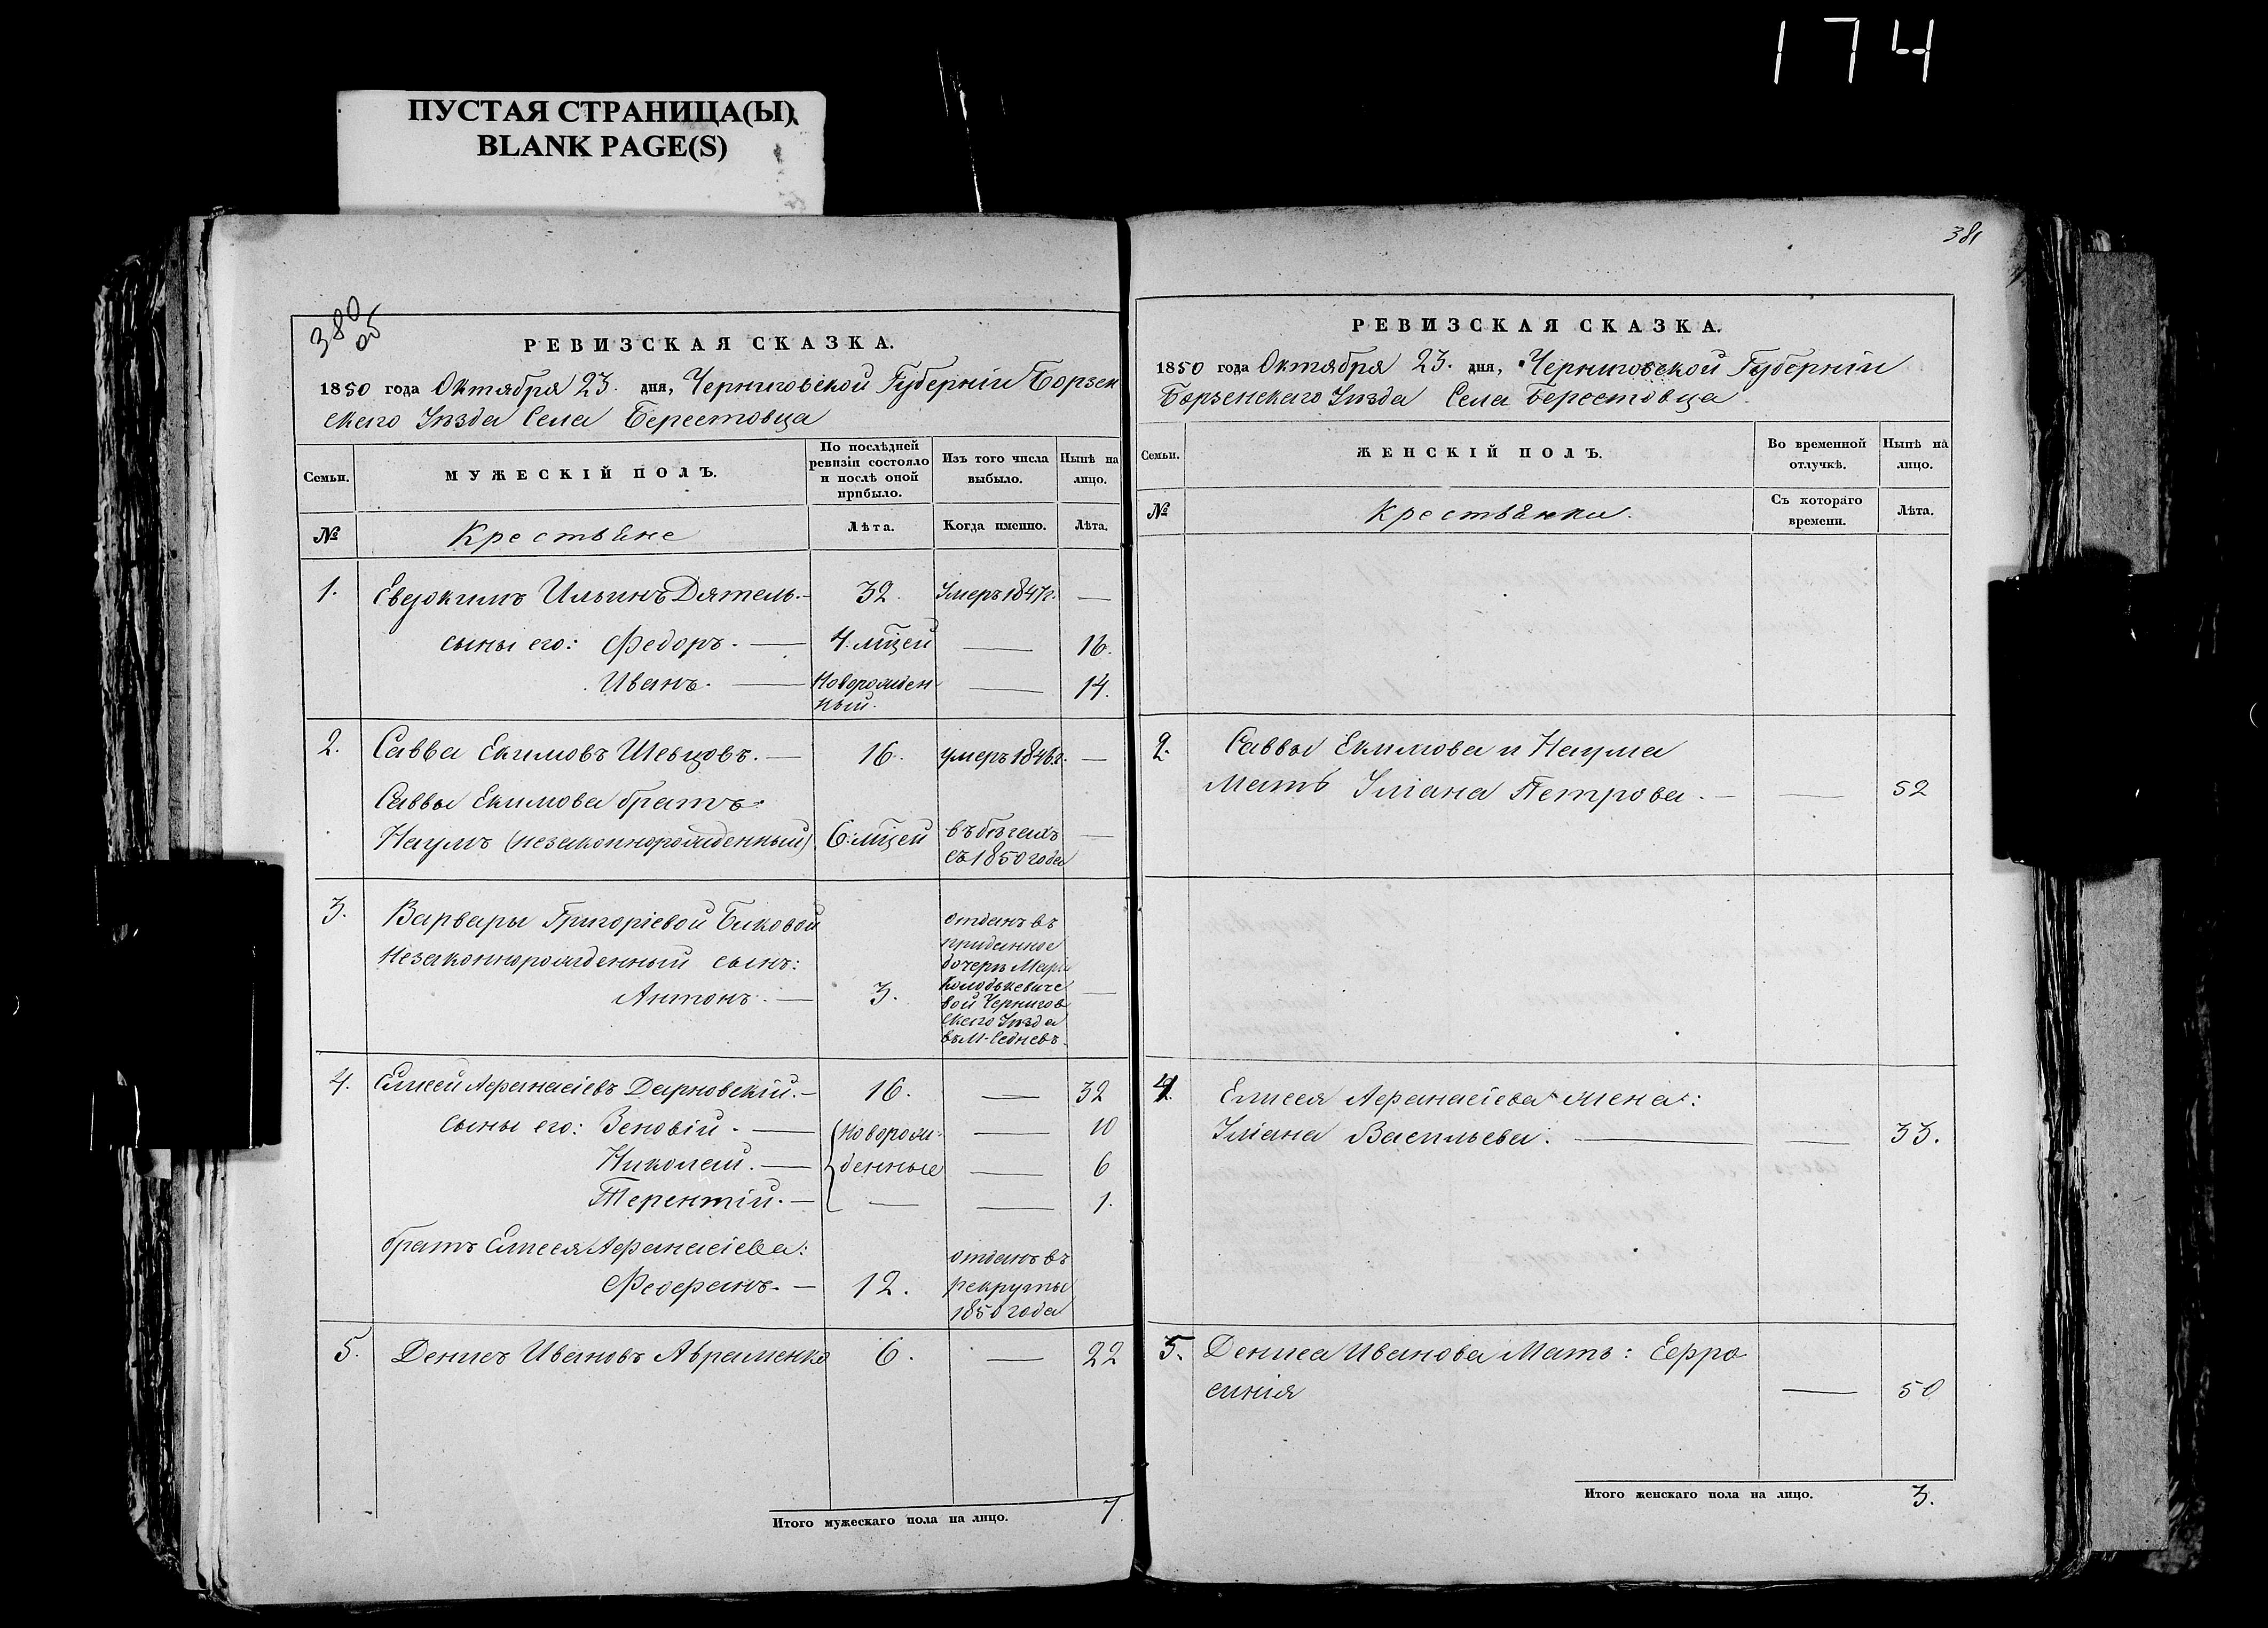 174
ПУСТАЯ СТРАНИЦА(Ы)
BLANK PAGE(S)
380
об
РЕВИЗСКАЯ СКАЗКА.
1850 года Октября 23. дня, Черниговской Губерніи Борзен
скаго Уѣзда Села Берестовца
Семьи. МУЖЕСКІЙ ПОЛЪ. По послѣдней ревизіи состояло и послѣ оной прибыло. Изъ того числа выбыло. Нынѣ на лицо.
№ Крестьяне Лѣта. Когда именно. Лѣта.
1. Евдокимъ Ильинъ Дятель.— 32. Умеръ 1847г. —
сыны его: Федоръ. — 4. мѣцей — 16.
Иванъ. — Новорожден
ный. — 14.
2. Савва Екимовъ Шевцовъ. — 16. умеръ 1846г. —
Саввы Екимова братъ
Наумъ (незаконнорожденный) 6. мѣцей въ бѣгахъ
съ 1850 года —
3. Варвары Григоріевой Биковой
незаконнорожденный сынъ:
Антонъ. — 3. —
отданъ въ
приданное
дочерѣ Маріи
Колодькевиче
вой Чернигов
скаго Уѣзда
въ М. Седневъ.
4. Елисей Афанасіевъ Дарновскій.— 16. — 32
сыны его: Зеновій. — (новорож- — 10
Николай. — денные — 6
Терентій. — — — 1.
братъ Елисея Афанасіева:
Феофанъ. — 12. отданъ въ
рекруты
1850 года
5. Денисъ Ивановъ Авраменко 6. — 22
Итого мужескаго пола на лицо. 7.
381
РЕВИЗСКАЯ СКАЗКА.
1850 года Октября 23. дня, Черниговской Губерніи
Борзенскаго Уѣзда Села Берестовца.
Семьи. ЖЕНСКІЙ ПОЛЪ. Во временной отлучкѣ. Нынѣ на лицо.
№ Крестьянки. Съ котораго времени. Лѣта.
2. Саввы Екимова и Наума
Мать Уліана Петрова. — — 52
4. Елисея Афанасіева жена:
Уліана Васильева. — — 33.
5. Дениса Иванова Мать: Ефро
синія — 50
Итого женскаго пола на лицо. 3.